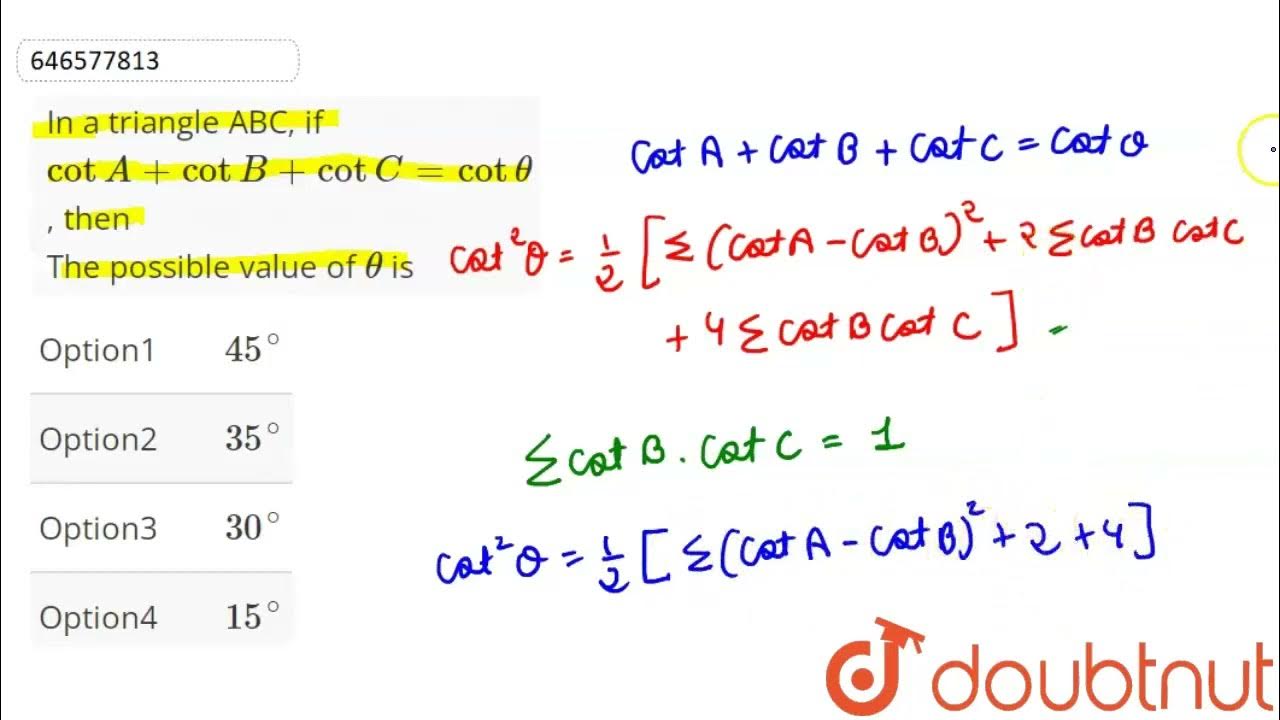 646577813
In a triangle ABC, if
cot A + cot B + cot C = cot θ
, then
The possible value of θ is
Option1 45°
Option2 35°
Option3 30°
Option4 15°
Cot A + Cot B + Cot C = Cot θ
Cot²θ = 1/2 [ Σ (Cot A - Cot B)² + 2 Σ Cot B Cot C
+ 4 Σ Cot B Cot C ] =
Σ Cot B . Cot C = 1
Cot²θ = 1/2 [ Σ (Cot A - Cot B)² + 2 + 4 ]
doubtnut